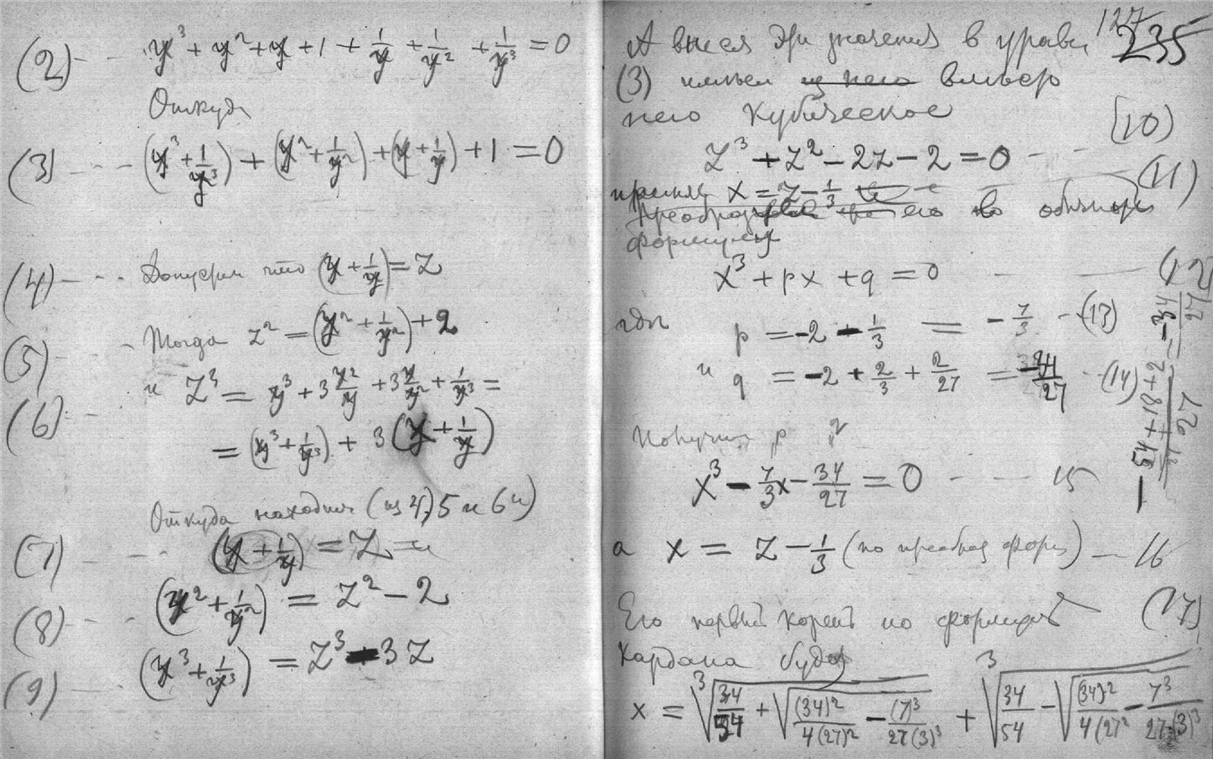 (2) y³ + y² + y + 1 + 1/y + 1/y² + 1/y³ = 0
Откуда
(3) (y³ + 1/y³) + (y² + 1/y²) + (y + 1/y) + 1 = 0
(4) Допустим что (y + 1/y) = z
(5) Тогда z² = (y² + 1/y²) + 2
(6) и z³ = y³ + 3 y²/y + 3 y/y² + 1/y³ =
= (y³ + 1/y³) + 3 (y + 1/y)
Откуда находим (из 4, 5 и 6и)
(7) (y + 1/y) = z
(8) (y² + 1/y²) = z² − 2
(9) (y³ + 1/y³) = z³ − 3z
127
235
А внеся эти значения в уравн
(3) имеем из него вместо
него кубическое
z³ + z² − 2z − 2 = 0 (10)
x = z − 1/3 (11)
Преобразуем его по обычной
формуле
x³ + px + q = 0 (12
где p = −2 − 1/3 = − 7/3 (13)
и q = −2 + 2/3 + 2/27 = −34/27 (14)
− 54 + 18 + 2 / 27 = −34/27
Получим
x³ − 7/3 x − 34/27 = 0 15
а x = z − 1/3 (по преобраз форм) 16
Его первый корень по формуле (17)
Кардана будет
x = ³√(34/54 + √((34)²/4(27)² − (7)³/27(3)³)) + ³√(34/54 − √((34)²/4(27)² − 7³/27(3)³))